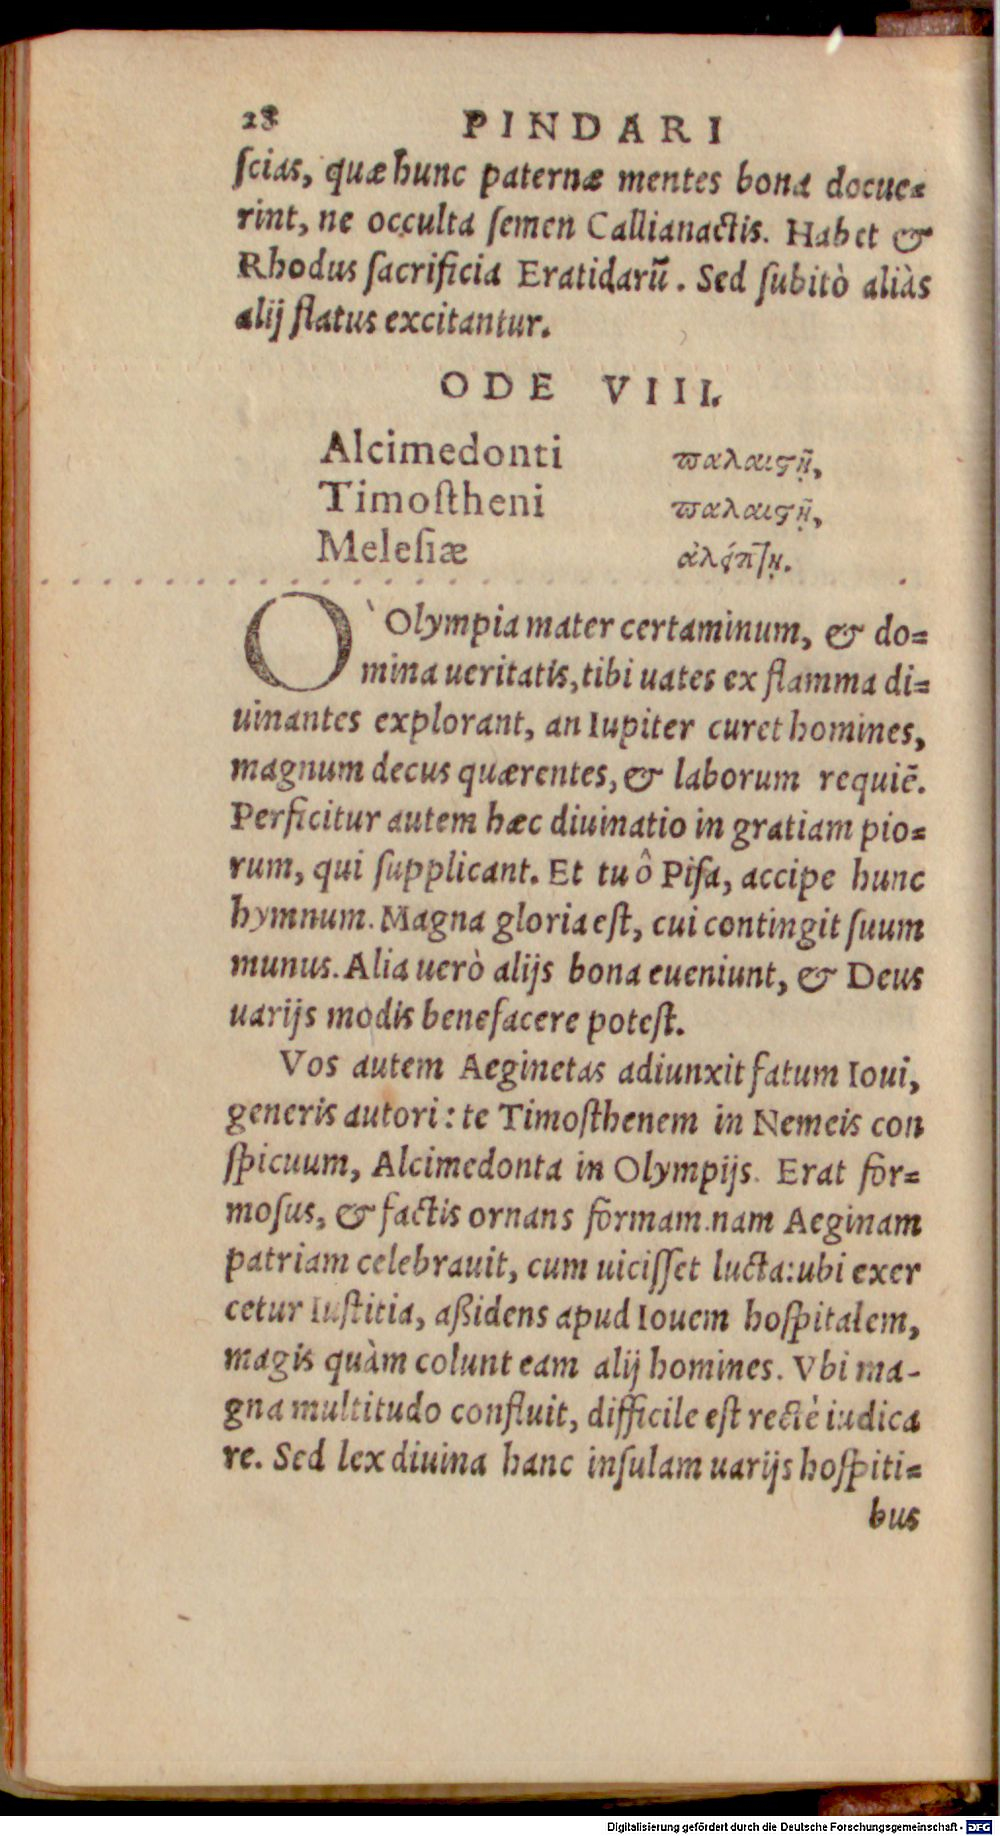 28 PINDARI
ſcias, quæ hunc paternæ mentes bona docue=
rint, ne occulta ſemen Callianactis. Habet &
Rhodus ſacrificia Eratidarū. Sed ſubitò aliàs
alij flatus excitantur.
ODE VIII.
Alcimedonti ϖαλαιϛῇ,
Timoſtheni ϖαλαιϛῇ,
Meleſiæ
O` Olympia mater certaminum, & do=
mina ueritatis, tibi uates ex flamma di=
uinantes explorant, an Iupiter curet homines,
magnum decus quærentes, & laborum requiē.
Perficitur autem hæc diuinatio in gratiam pio=
rum, qui ſupplicant. Et tu ô Piſa, accipe hunc
hymnum. Magna gloria eſt, cui contingit ſuum
munus. Alia uerò alijs bona eueniunt, & Deus
uarijs modis benefacere poteſt.
Vos autem Aeginetas adiunxit fatum Ioui,
generis autori: te Timoſthenem in Nemeis con
ſpicuum, Alcimedonta in Olympijs. Erat for=
moſus, & factis ornans formam. nam Aeginam
patriam celebrauit, cum uiciſſet lucta: ubi exer
cetur Iuſtitia, aßidens apud Iouem hoſpitalem,
magis quàm colunt eam alij homines. Vbi ma-
gna multitudo confluit, difficile eſt rectè iudica
re. Sed lex diuina hanc inſulam uarijs hoſpiti=
bus
Digitalisierung gefördert durch die Deutsche Forschungsgemeinschaft - DFG